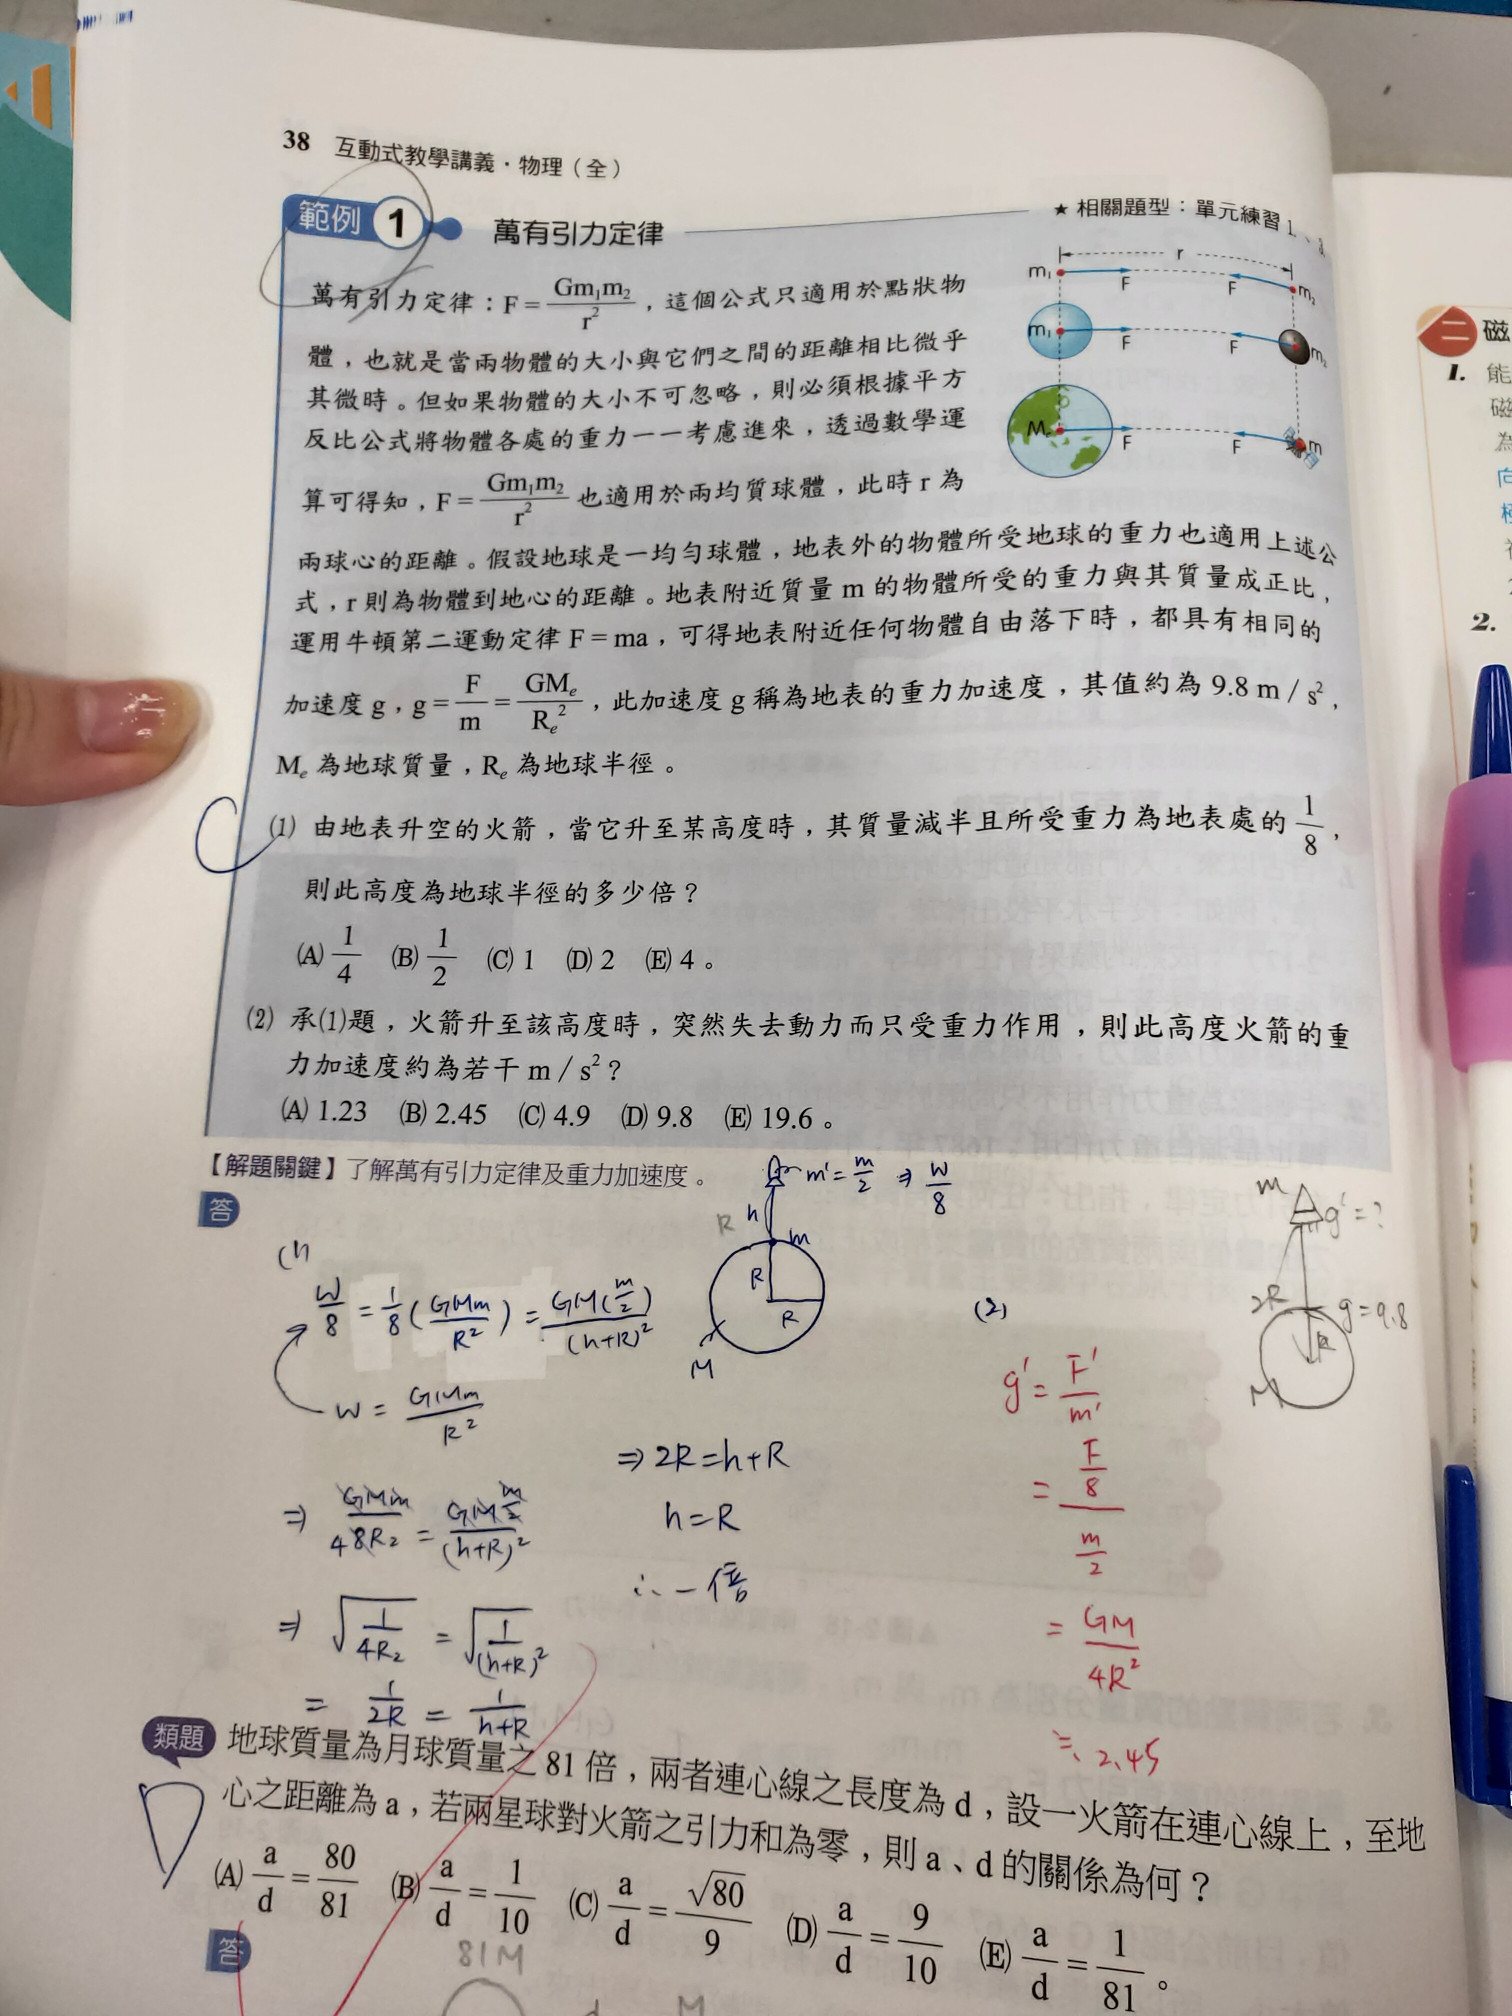 38 互動式教學講義・物理(全)
範例 1 萬有引力定律
★ 相關題型:單元練習 1.、3.
萬有引力定律:F=Gm₁m₂/r²,這個公式只適用於點狀物
體,也就是當兩物體的大小與它們之間的距離相比微乎
其微時。但如果物體的大小不可忽略,則必須根據平方
反比公式將物體各處的重力一一考慮進來,透過數學運
算可得知,F=Gm₁m₂/r²也適用於兩均質球體,此時 r 為
兩球心的距離。假設地球是一均勻球體,地表外的物體所受地球的重力也適用上述公
式,r 則為物體到地心的距離。地表附近質量 m 的物體所受的重力與其質量成正比,
運用牛頓第二運動定律 F=ma,可得地表附近任何物體自由落下時,都具有相同的
加速度 g,g=F/m=GMₑ/Rₑ²,此加速度 g 稱為地表的重力加速度,其值約為 9.8 m/s²,
Mₑ 為地球質量,Rₑ 為地球半徑。
r
m₁ F F m₂
m₁ F F m₂
Mₑ F F m
(1) 由地表升空的火箭,當它升至某高度時,其質量減半且所受重力為地表處的 1/8,
則此高度為地球半徑的多少倍?
(A) 1/4 (B) 1/2 (C) 1 (D) 2 (E) 4。
(2) 承(1)題,火箭升至該高度時,突然失去動力而只受重力作用,則此高度火箭的重
力加速度約為若干 m/s²?
(A) 1.23 (B) 2.45 (C) 4.9 (D) 9.8 (E) 19.6。
【解題關鍵】了解萬有引力定律及重力加速度。
答
m'=m/2 ⇒ W/8
R h m
R
R
M
(1)
W/8=1/8(GMm/R²)=GM(m/2)/(h+R)²
W=GMm/R²
⇒ GMm/48R2=GM m/2/(h+R)²
⇒ √1/4R2=√1/(h+R)²
= 1/2R=1/h+R
⇒ 2R=h+R
h=R
∴一倍
(2)
g'=F'/m'
= F/8/m/2
= GM/4R²
≒2.45
m g'=?
2R g=9.8
R
M
類題 地球質量為月球質量之 81 倍,兩者連心線之長度為 d,設一火箭在連心線上,至地
心之距離為 a,若兩星球對火箭之引力和為零,則 a、d 的關係為何?
(A) a/d=80/81 (B) a/d=1/10 (C) a/d=√80/9 (D) a/d=9/10 (E) a/d=1/81。
答
81M
d
M
二 磁
1. 能
磁
為
向
2.